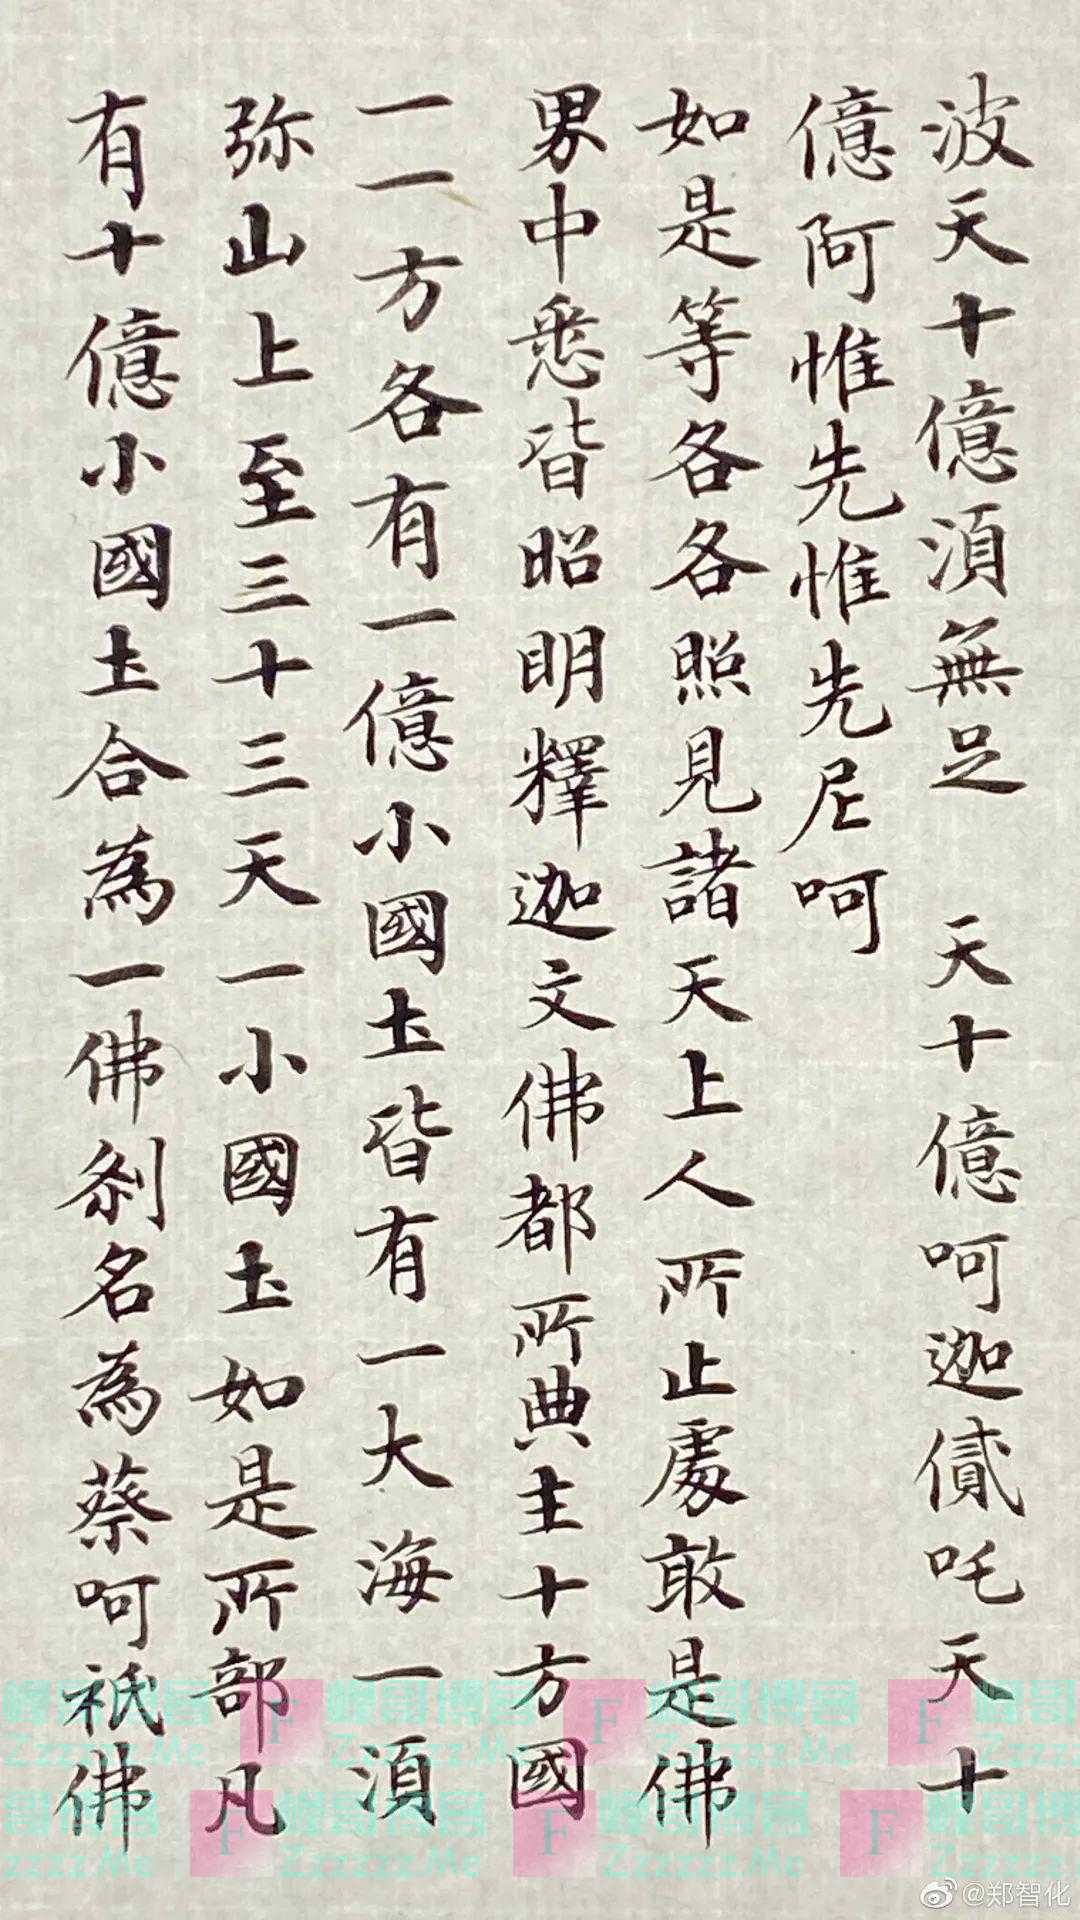 波天十億湏無足　天十億呵迦貳吒天十
億阿惟先惟先尼呵
如是等各各照見諸天上人所止處敢是佛
界中悉皆昭明釋迦文佛都所典主十方國
一一方各有一億小國土皆有一大海一湏
弥山上至三十三天一小國土如是所部凡
有十億小國土合為一佛剎名為蔡呵祇佛
F
ZzzzzZ.Me
@郑智化